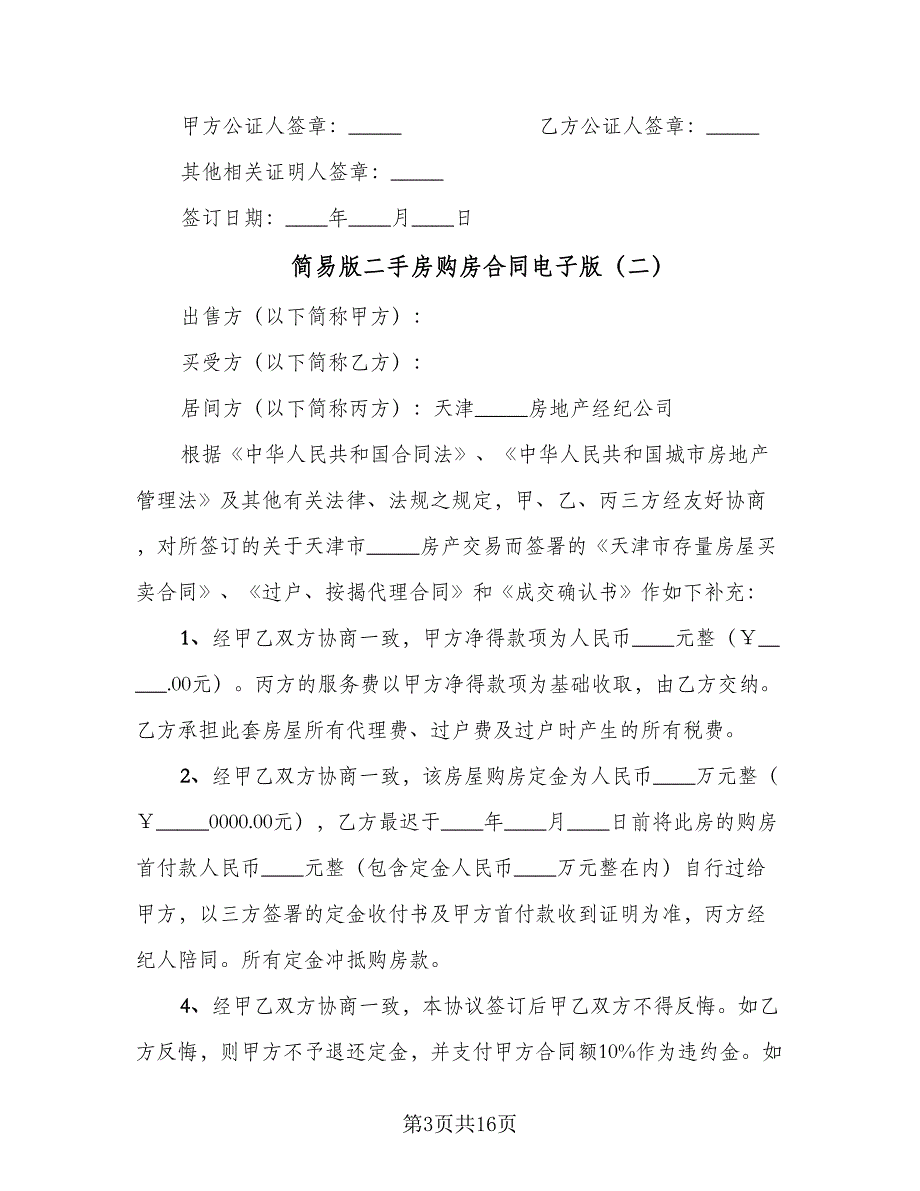 甲方公证人签章：_____ 乙方公证人签章：_____
其他相关证明人签章：_____
签订日期：____年____月____日
简易版二手房购房合同电子版（二）
出售方（以下简称甲方）：
买受方（以下简称乙方）：
居间方（以下简称丙方）：天津_____房地产经纪公司
根据《中华人民共和国合同法》、《中华人民共和国城市房地产
管理法》及其他有关法律、法规之规定，甲、乙、丙三方经友好协商
，对所签订的关于天津市_____房产交易而签署的《天津市存量房屋买
卖合同》、《过户、按揭代理合同》和《成交确认书》作如下补充：
1、经甲乙双方协商一致，甲方净得款项为人民币____元整（￥__
___.00元）。丙方的服务费以甲方净得款项为基础收取，由乙方交纳。
乙方承担此套房屋所有代理费、过户费及过户时产生的所有税费。
2、经甲乙双方协商一致，该房屋购房定金为人民币____万元整（
￥_____0000.00元），乙方最迟于____年____月____日前将此房的购房
首付款人民币____元整（包含定金人民币____万元整在内）自行过给
甲方，以三方签署的定金收付书及甲方首付款收到证明为准，丙方经
纪人陪同。所有定金冲抵购房款。
4、经甲乙双方协商一致，本协议签订后甲乙双方不得反悔。如乙
方反悔，则甲方不予退还定金，并支付甲方合同额10%作为违约金。如
第3页共16页